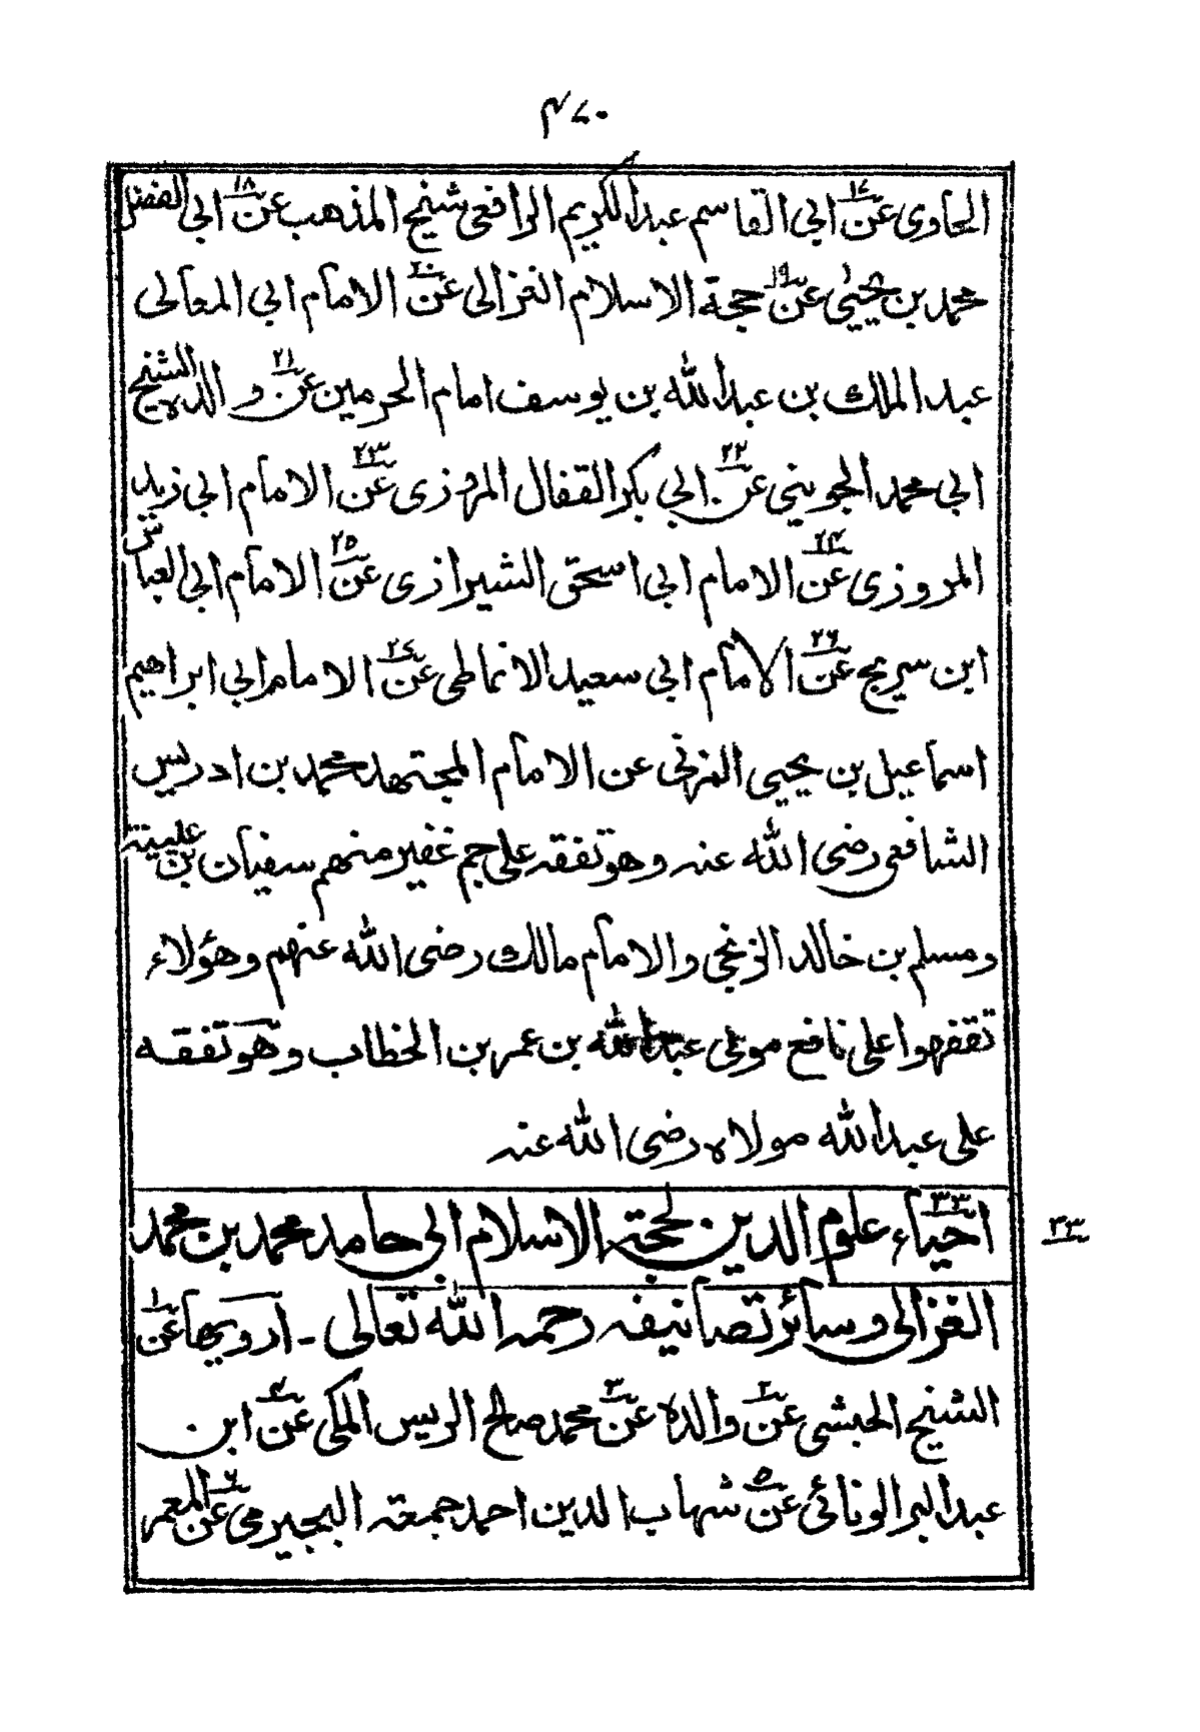 ٤٧٠
الحاوى عن١٧ ابى القاسم عبدالكريم الرافعى شيخ المذهب عن١٨ ابى الفضل
محمد بن يحيىٰ عن١٩ حجة الاسلام الغزالى عن٢٠ الامام ابى المعالى
عبد الملك بن عبدالله بن يوسف امام الحرمين عن٢١ والده الشيخ
ابى محمد الجوينى عن٢٢ ابى بكر القفال المروزى عن٢٣ الامام ابى زيد
المروزى عن٢٤ الامام ابى اسحق الشيرازى عن٢٥ الامام ابى العباس
ابن سريج عن٢٦ الامام ابى سعيد الانماطى عن٢٧ الامام ابى ابراهيم
اسماعيل بن يحيى المزنى عن الامام المجتهد محمد بن ادريس
الشافعى رضى الله عنه وهو تفقه على جم غفير منهم سفيان بن عليينة
ومسلم بن خالد الزنجى والامام مالك رضى الله عنهم وهؤلاء
تقفهوا على نافع مولى عبدالله بن عمر بن الخطاب وهو تفقه
على عبدالله مولاه رضى الله عنه
٣٣ احياء علوم الدين لحجة الاسلام ابى حامد محمد بن محمد
٣٣
الغزالى وسائر تصانيفه رحمه الله تعالى ـ ارويها عن١
الشيخ الحبشى عن٢ والده عن٣ محمد صالح الريس المكى عن٤ ابن
عبد البر الونائى عن٥ شهاب الدين احمد جمعة البجيرمى عن٦ المعمر